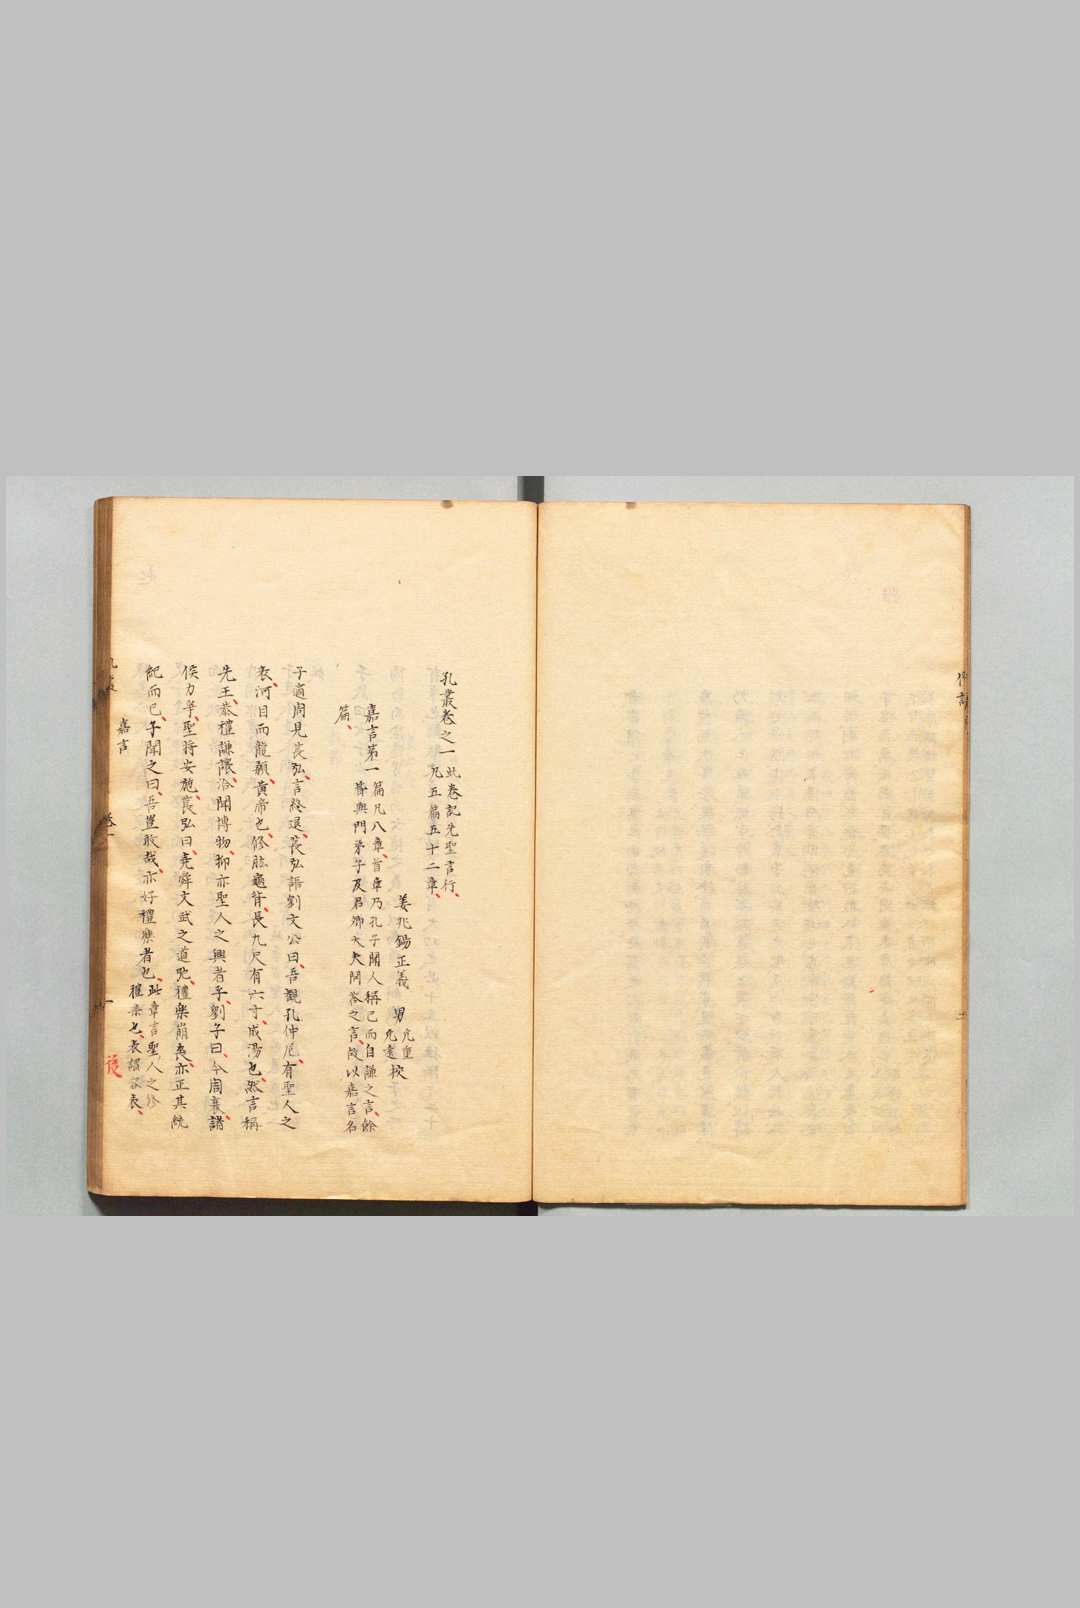 孔叢卷之一
此卷記先聖言行
凡五篇五十二章
姜兆錫正義
男
允重
允遠
校
嘉言第一
篇凡八章首章乃孔子聞人稱已而自謙之言餘
皆與門弟子及君卿大夫問答之言故以嘉言名
篇
子適周見萇弘言終退萇弘語劉文公曰吾觀孔仲尼有聖人之
表河目而龍顙黃帝也修肱龜背長九尺有六寸成湯也然言稱
先王恭禮謙讓洽聞博物抑亦聖人之興者乎劉子曰今周衰諸
侯力爭聖將安施萇弘曰堯舜文武之道弛禮樂崩喪亦正其統
紀而已子聞之曰吾豈敢哉亦好禮樂者也
此章言聖人之於
禮樂也表謂容表
嘉言
卷一
一